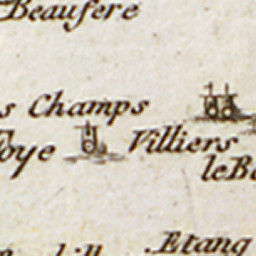 Beaufere
s Champs
oye Villiers
le B
Etang